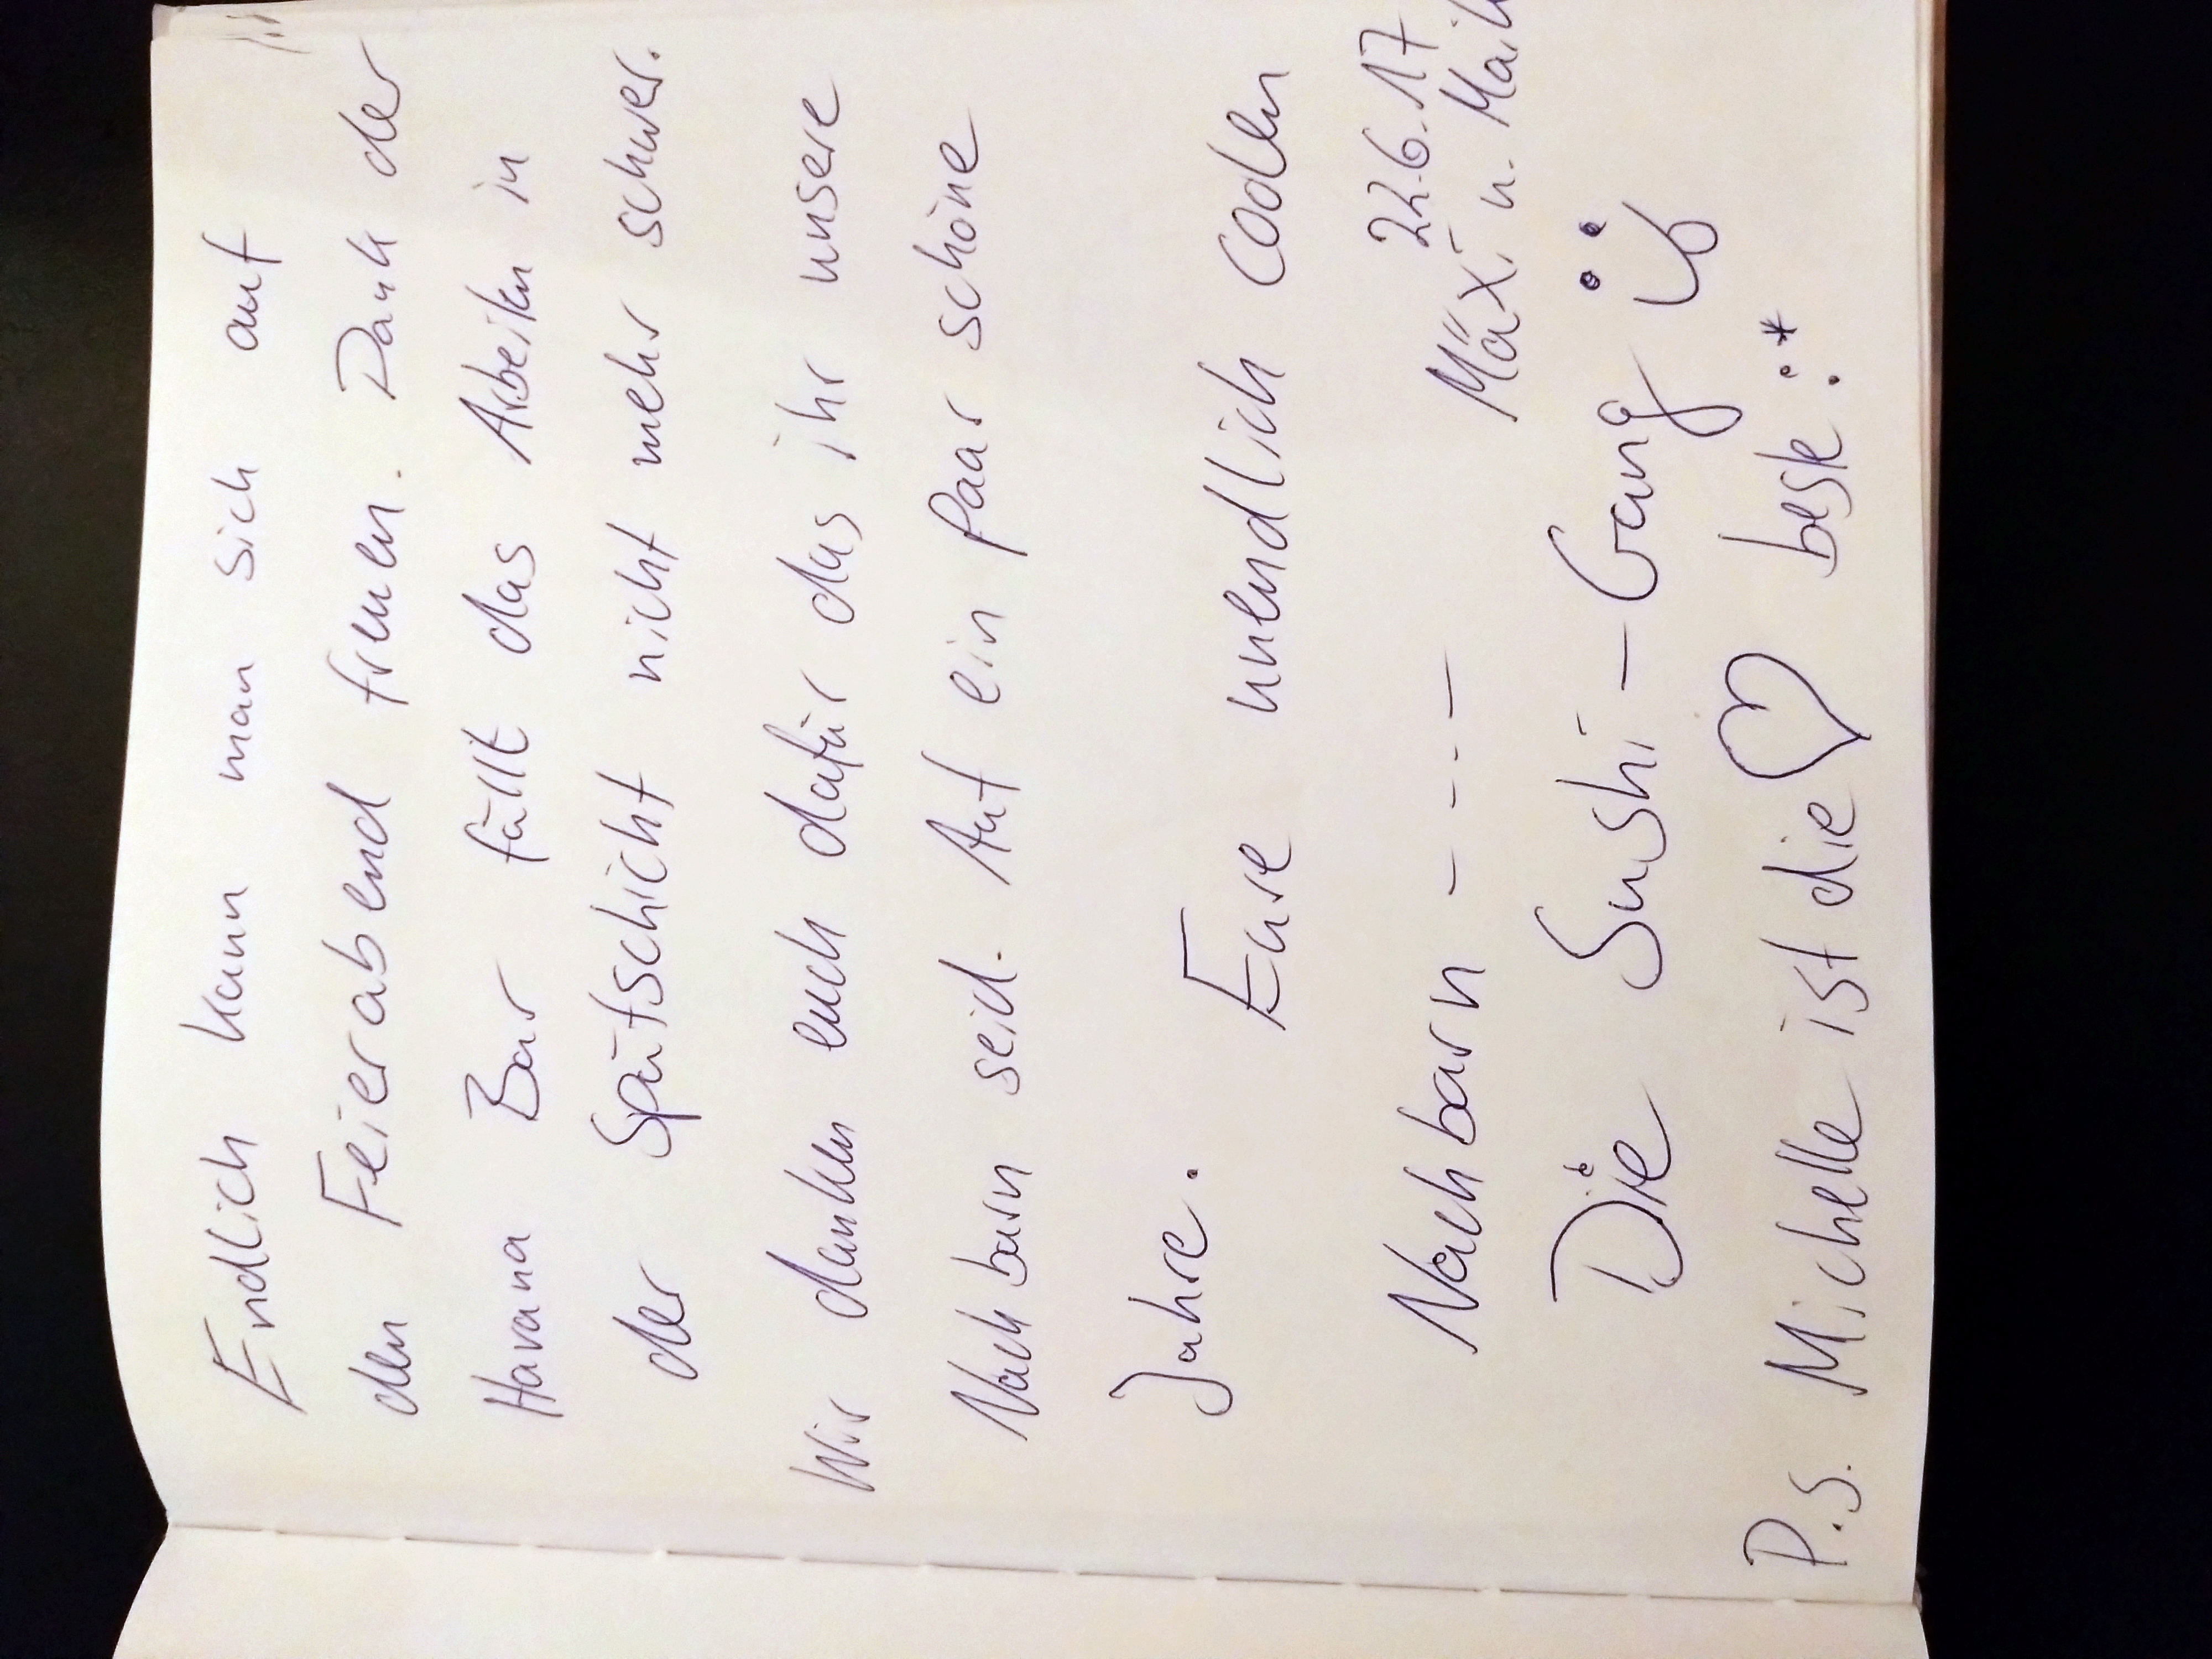 Endlich kann man sich auf
den Feierabend freuen. Dank der
Havana Bar fällt das Arbeiten in
der Spätschicht nicht mehr schwer.
Wir danken euch dafür das ihr unsere
Nachbarn seid. Auf ein Paar schöne
Jahre.
Eure unendlich coolen
Nachbarn - - . . - 22.6.17
Mäxi u.
Die Sushi-Gang
P.S. Michelle ist die ♡ beste :*